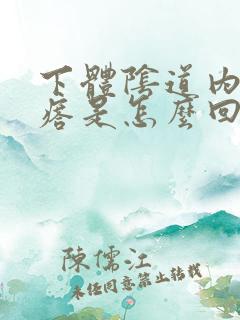 下體陰道内
痞是怎麼回
陳儒江
未经同意禁止转载